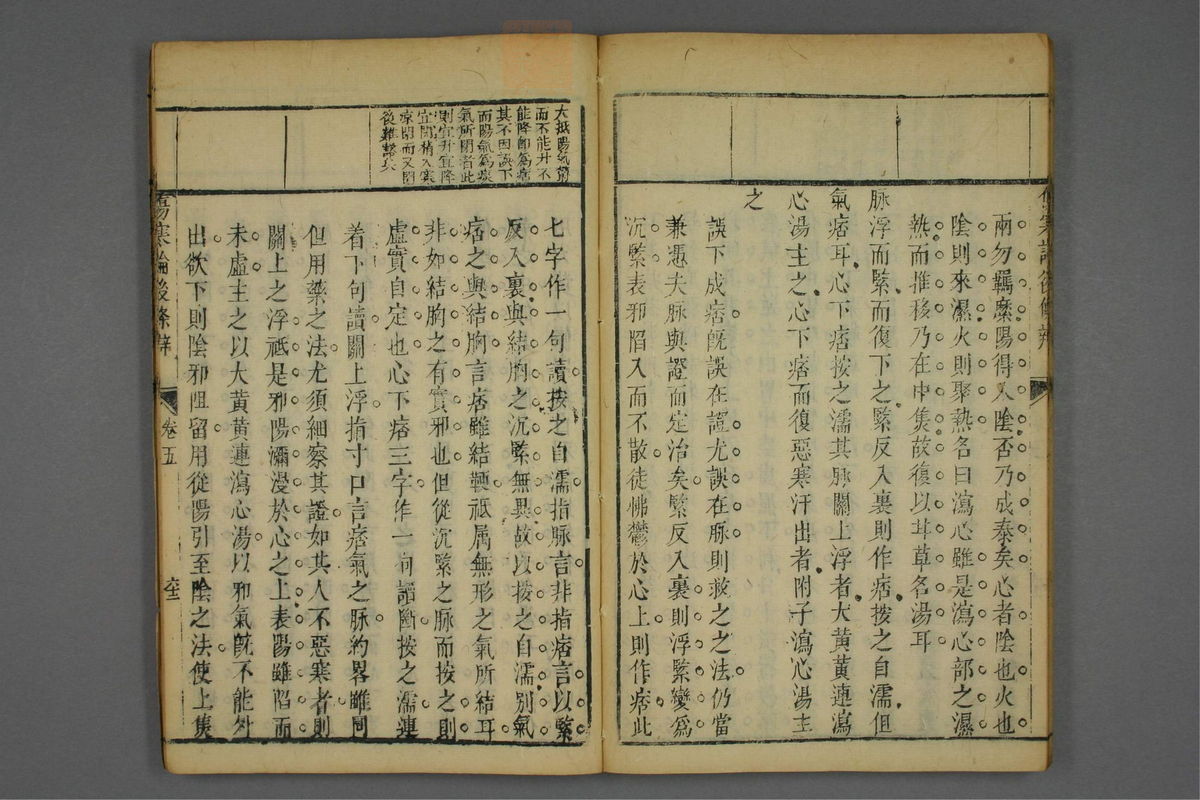 傷寒論後條辨
兩勿羈縻陽得入陰否乃成泰矣心者陰也火也
陰則來濕火則聚熱名曰瀉心雖是瀉心部之濕
熱而推移乃在中焦故復以甘草名湯耳
脉浮而緊而復下之緊反入裏則作痞按之自濡但
氣痞耳心下痞按之濡其脉關上浮者大黃黃連瀉
心湯主之心下痞而復惡寒汗出者附子瀉心湯主
之
誤下成痞旣誤在證尤誤在脉則救之之法仍當
兼憑夫脉與證而定治矣緊反入裏則浮緊變爲
沉緊表邪陷入而不散徒怫鬱於心上則作痞此
大抵陽氣餒
而不能升不
能降卽爲痞
其不因誤下
而陽氣爲痰
氣所閉者此
則宜升宜降
宜開稍入寒
凉閉而又閉
後難救矣
七字作一句讀按之自濡指脉言非指痞言以緊
反入裏與結胸之沉緊無異故以按之自濡別氣
痞之與結胸言痞雖結鞕祗属無形之氣所結耳
非如結胸之有實邪也但從沉緊之脉而按之則
虛實自定也心下痞三字作一句讀斷按之濡連
着下句讀關上浮指寸口言痞氣之脉約畧雖同
但用藥之法尤須細察其證如其人不惡寒者則
關上之浮祗是邪陽瀰漫於心之上表陽雖陷而
未虛主之以大黃黃連瀉心湯以邪氣旣不能外
出欲下則陰邪阻留用從陽引至陰之法使上焦
傷寒論後條辨
卷五